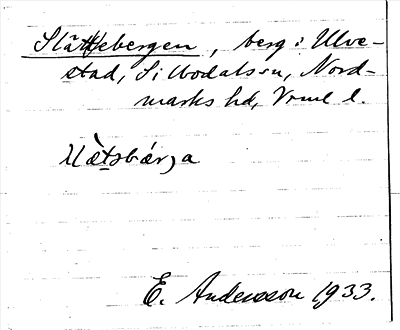 Slättebergen, berg i Ulve-
stad, Sillbodals sn, Nord-
marks hd, Vrml l.
E. Andersson 1933.